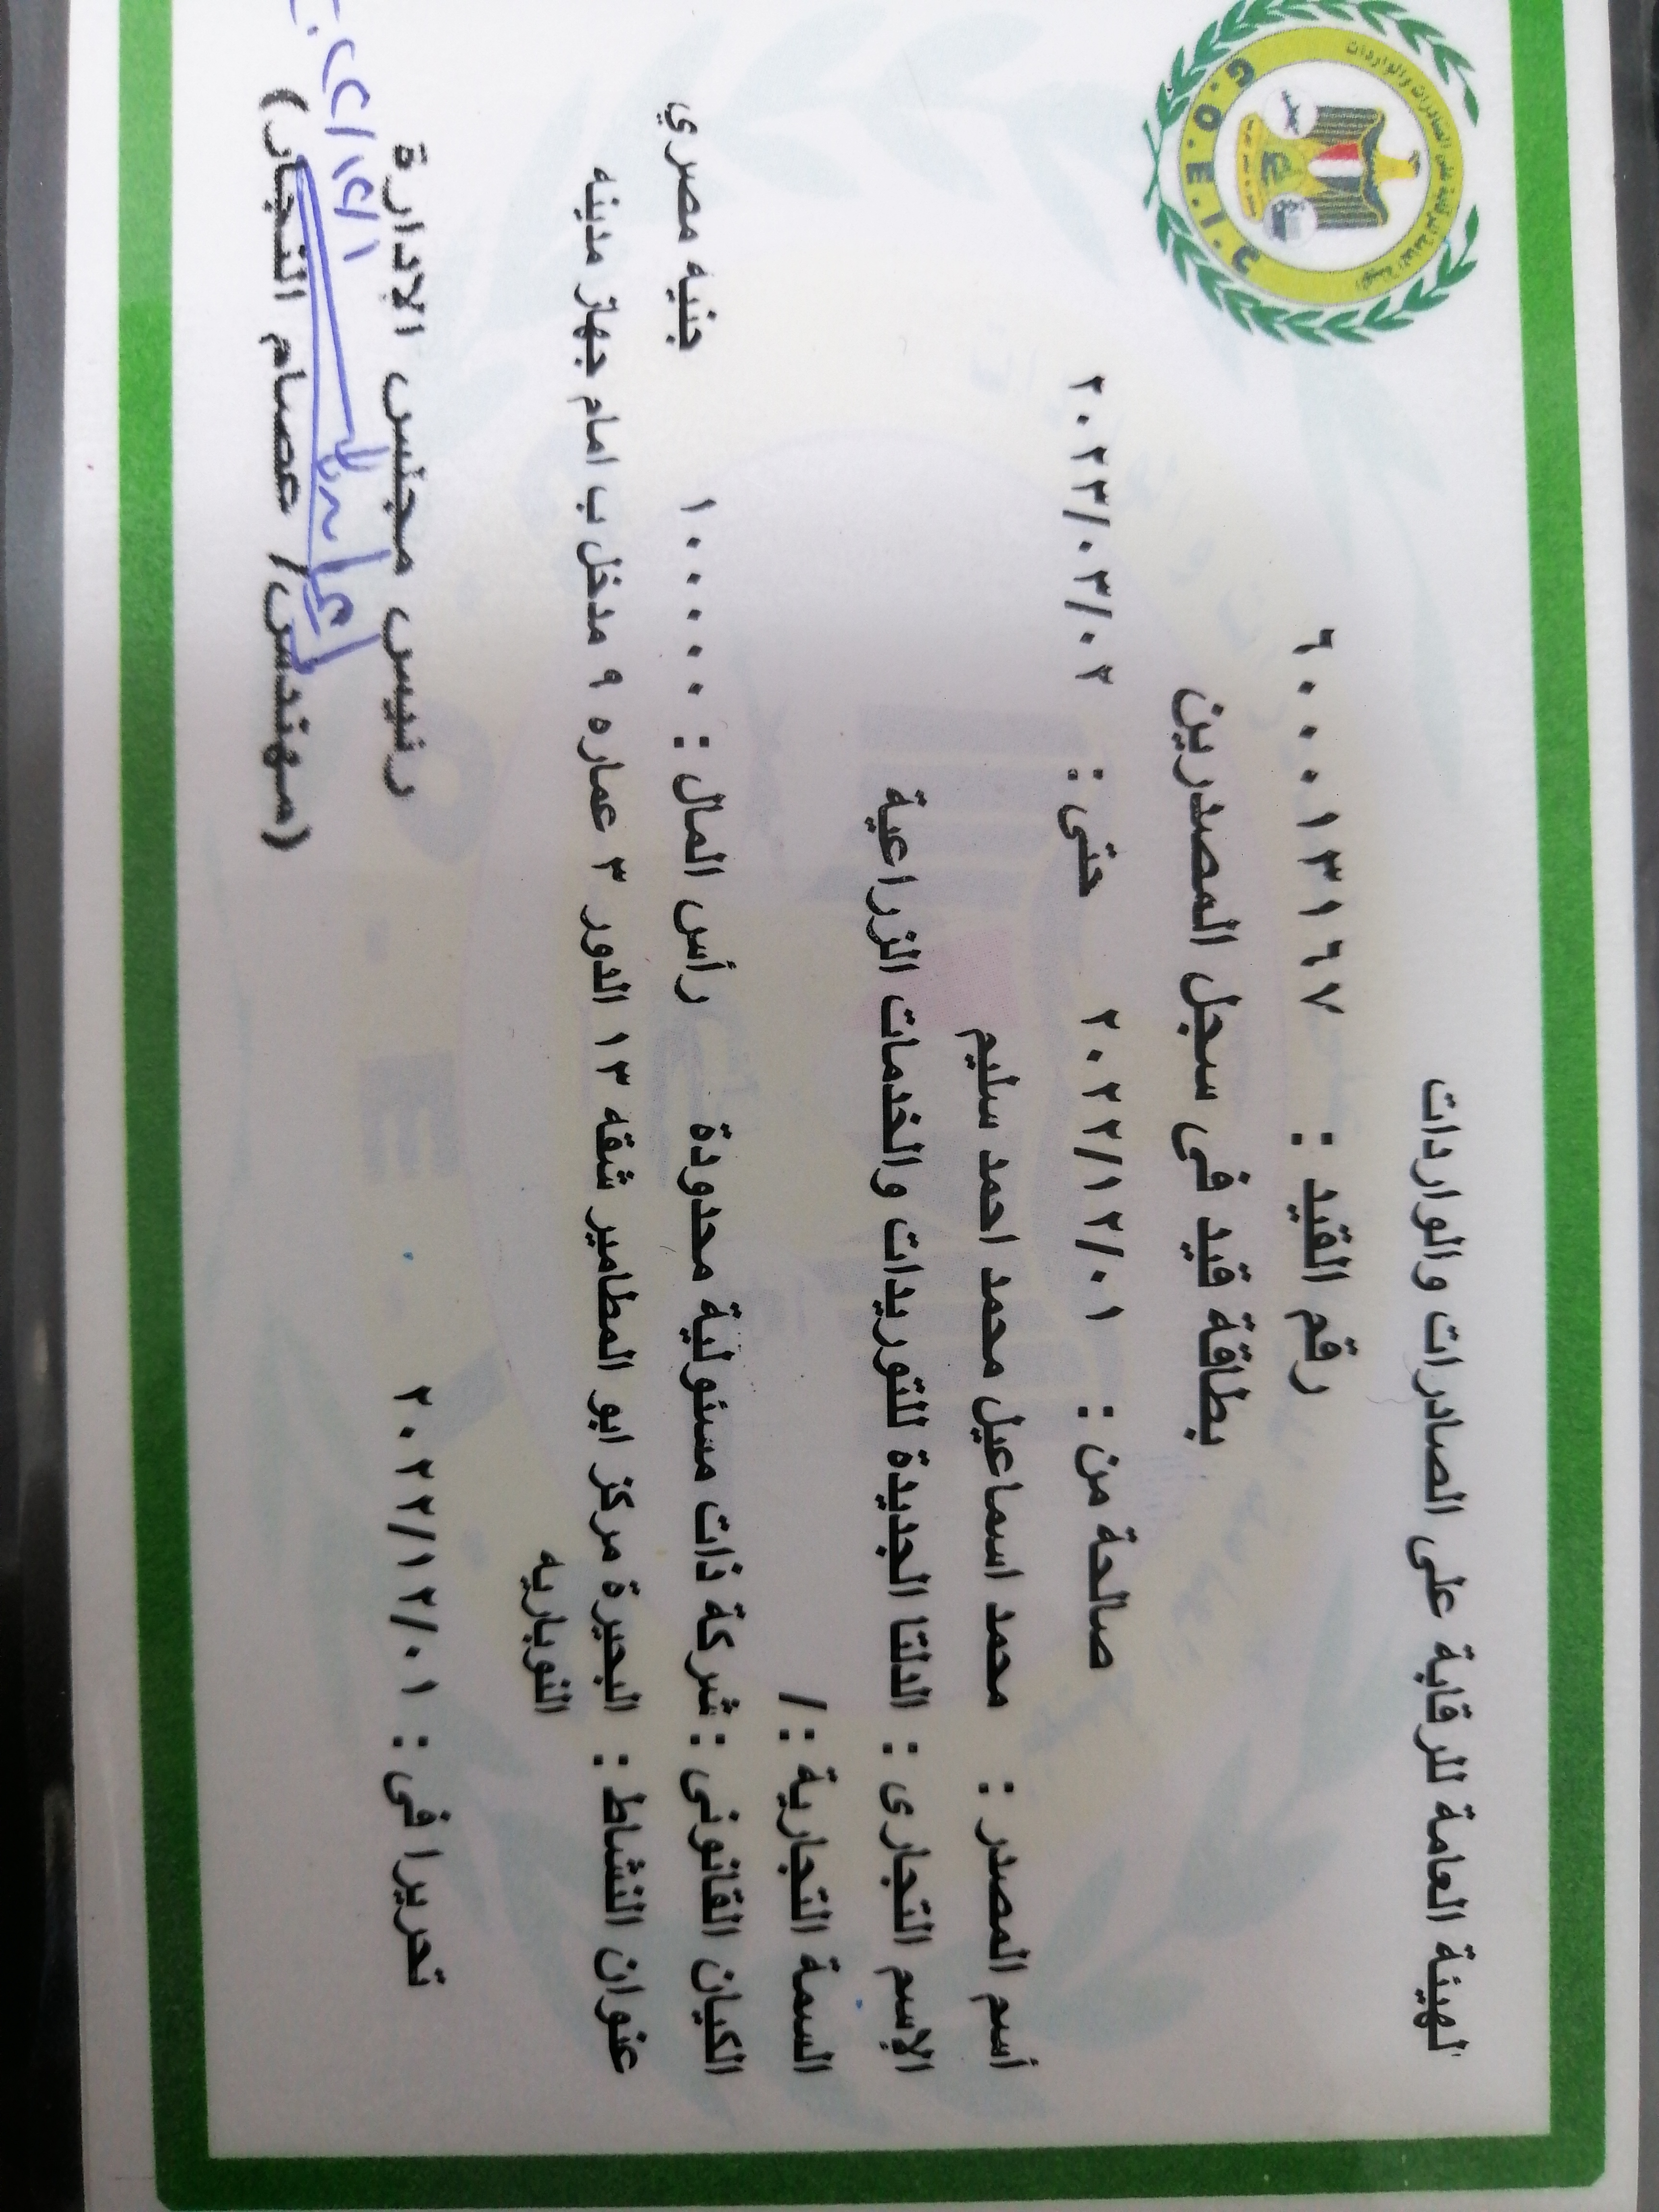 الهيئة العامة للرقابة على الصادرات والواردات
رقم القيد : ٦٠٠٠١٣١٦٧
بطاقة قيد فى سجل المصدرين
صالحة من : ٢٠٢٢/١٢/٠١ حتى : ٢٠٢٣/٠٣/٠٢
أسم المصدر : محمد اسماعيل محمد احمد سليم
الإسم التجارى : الدلتا الجديدة للتوريدات والخدمات الزراعية
السمة التجارية : /
الكيان القانونى : شركة ذات مسئولية محدودة رأس المال : ١٠٠٠٠ جنيه مصري
عنوان النشاط : البحيرة مركز ابو المطامير شقه ١٣ الدور ٣ عماره ٩ مدخل ب امام جهاز مدينه
النوباريه
تحريرا فى : ٢٠٢٢/١٢/٠١
رئيس مجلس الإدارة
(مهندس/ عصام النجار)
الهيئة العامة للرقابة على الصادرات والواردات
G.O.E.I.C